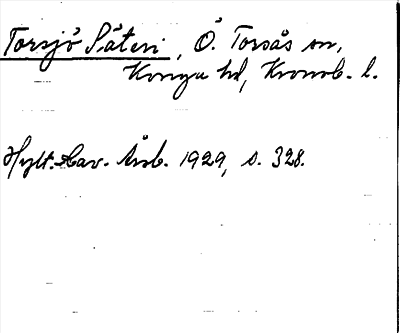 Torsjö Säteri, Ö. Torsås sn,
Konga hd, Kronob. l.
Hylt.-Cav. Årsb. 1929, s. 328.